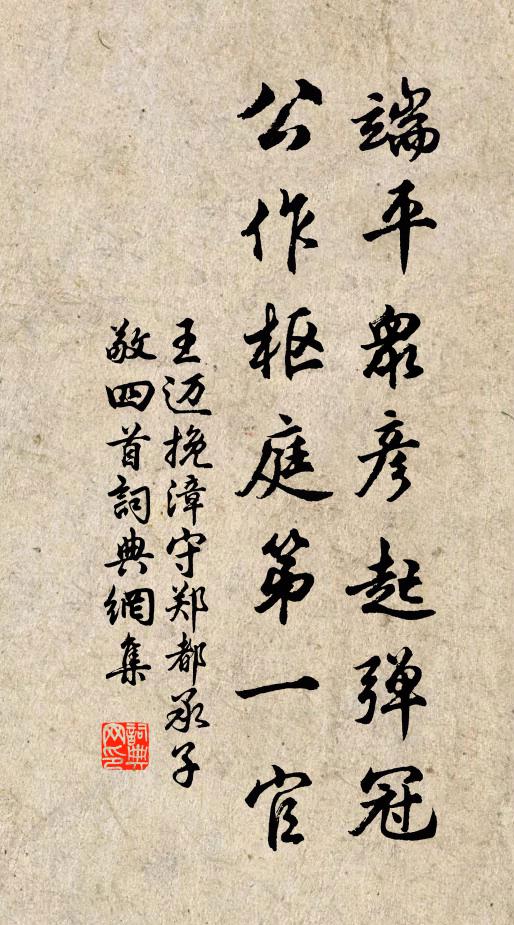 端平衆彦起弹冠
公作枢庭第一官
王迈挽漳守郑都承子
敬四首詞典網集
詞典
网印